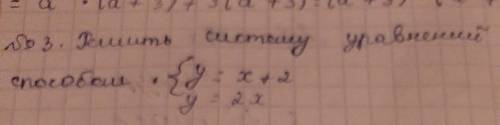 = a · (a + 3) + 3 (a + 3) = (a + 3)
№ 3. Решить систему уравнений
способом · { y = x + 2
y = 2x